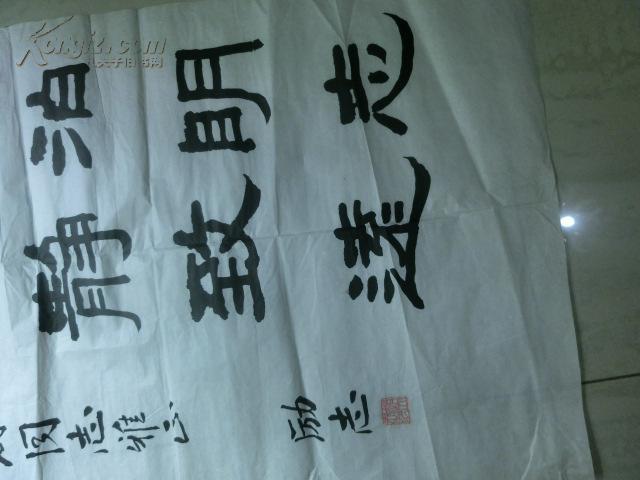 Kongfz.com
孔夫子旧书网
泊明志
静致遠
同志雅正
励志